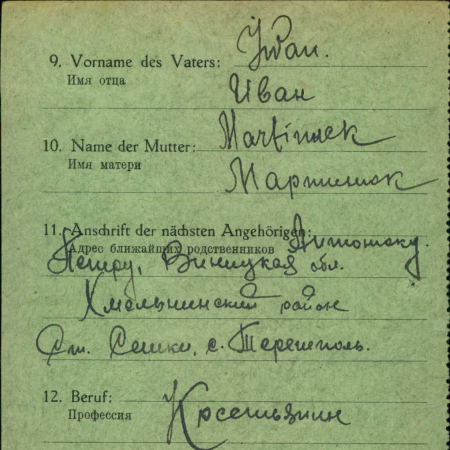 9. Vorname des Vaters: Iwan.
Имя отца Иван
10. Name der Mutter: Martinuek
Имя матери Мартинюк
11. Anschrift der nächsten Angehörigen:
Адрес ближайших родственников
Петру, Виницкая обл.
Хмельнинский район
Ст. Сешки, с. Терешполь.
12. Beruf:
Профессия Крестьянин